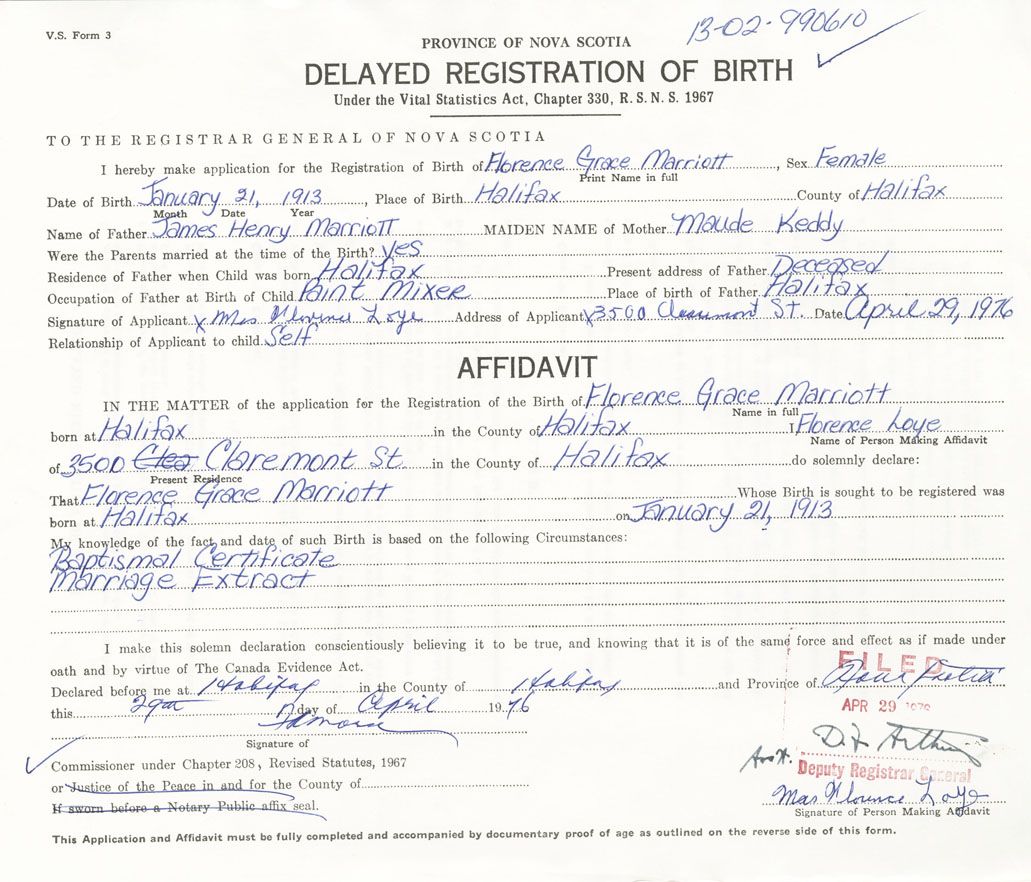 V.S. Form 3
13-02-990610
PROVINCE OF NOVA SCOTIA
DELAYED REGISTRATION OF BIRTH
Under the Vital Statistics Act, Chapter 330, R.S.N.S. 1967
TO THE REGISTRAR GENERAL OF NOVA SCOTIA
I hereby make application for the Registration of Birth of Florence Grace Marriott, Sex Female
Print Name in full
Date of Birth January 21, 1913, Place of Birth Halifax County of Halifax
Month Date Year
Name of Father James Henry Marriott MAIDEN NAME of Mother Maude Keddy
Were the Parents married at the time of the Birth? Yes
Residence of Father when Child was born Halifax Present address of Father Deceased
Occupation of Father at Birth of Child Paint Mixer Place of birth of Father Halifax
Signature of Applicant x Mrs Florence Loye Address of Applicant x 3500 St. Date April 29, 1976
Relationship of Applicant to child Self
AFFIDAVIT
IN THE MATTER of the application for the Registration of the Birth of Florence Grace Marriott
Name in full
born at Halifax in the County of Halifax I Florence Loye
Name of Person Making Affidavit
of 3500 Claremont St. in the County of Halifax do solemnly declare:
Present Residence
That Florence Grace Marriott Whose Birth is sought to be registered was
born at Halifax on January 21, 1913
My knowledge of the fact and date of such Birth is based on the following Circumstances:
Baptismal Certificate
Marriage Extract
I make this solemn declaration conscientiously believing it to be true, and knowing that it is of the same force and effect as if made under
oath and by virtue of The Canada Evidence Act.
FILED
Declared before me at Halifax in the County of Halifax and Province of Nova Scotia
this 29th day of April 1976
APR 29 1976
Signature of
Commissioner under Chapter 208, Revised Statutes, 1967
Deputy Registrar General
or Justice of the Peace in and for the County of
If sworn before a Notary Public affix seal.
Mrs Florence Loye
Signature of Person Making Affidavit
This Application and Affidavit must be fully completed and accompanied by documentary proof of age as outlined on the reverse side of this form.